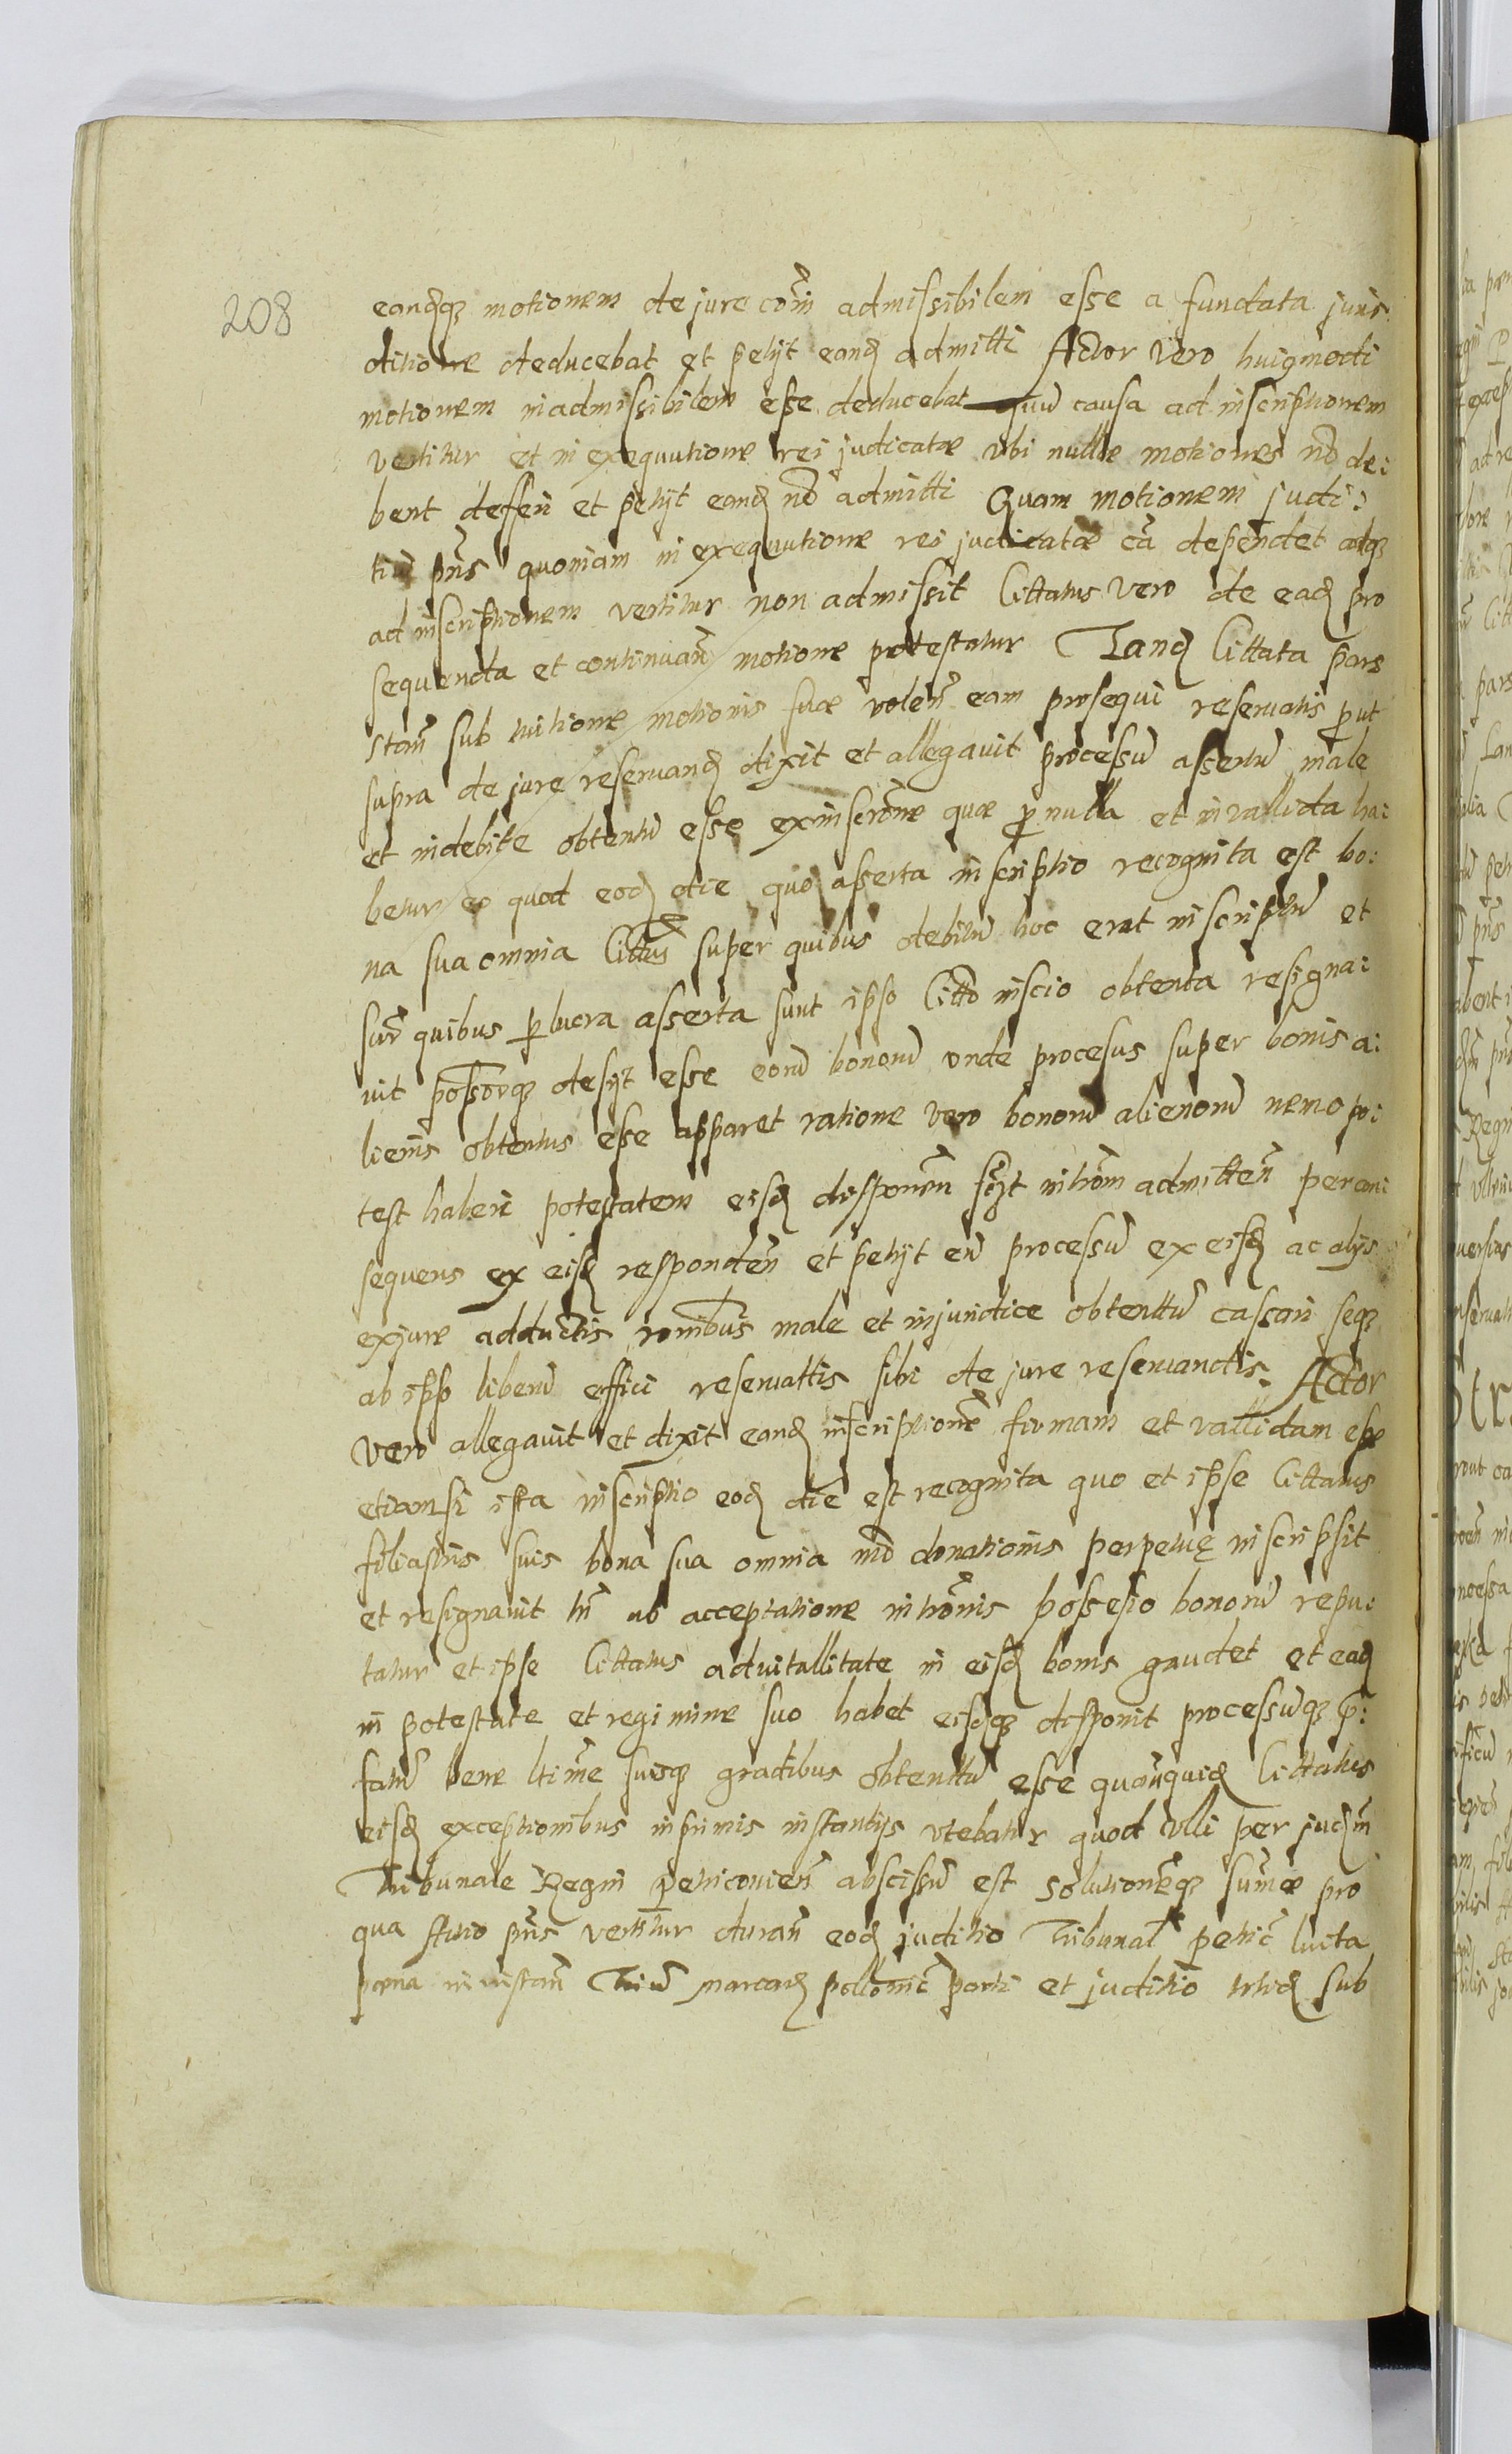 208
eandqз motionem de jure coīm admissibilem esse a fundata juris
ditione deducebat et petijt eand admitti Actor vero huigmodi
motionem inadmissibilem esse deducebat quū causa ad inscriptionem
vertitur et in exequutione rei judicatæ vbi nullæ motiones nō de:
bent defferi et petijt eand nō admitti Quam motionem judi:
tiū pn̄s quoniam in exequutione rei judicatæ cā dependet adqз
ad inscriptionem vertitur non admissit Cittatus vero de ead pro
sequenda et continuan̄ motione protestatur Tand Cittata pars
stan̄ sub mitione motionis suæ volen̄ eam prosequi reservatis put
supra de jure reservand dixit et allegavit processū assertū male
et indebite obtentū esse ex inscrōne quæ p nulla et invallida ha:
betur eo quod eod die quo asserta inscriptio recognita est bo:
na sua omnia Cittūs super quibus debitū hoc erat inscriptū et
supr̄ quibus p lucra asserta sunt ipso Cittō inscio obtenta resigna:
vit possorqз desijt esse eorū bonorū vnde procesus super bonis a:
lienis obtentus esse apparet ratione vero bonorū alienorū nemo po:
test haberi potestatem eisd disponen̄ scijt intrōm admitten̄ per
sequens ex eisd responden̄ et petijt eū processū ex eisd ac alijs
exjure adductis ronibus male et injuridice obtenttū cassari seqз
ab ipso liberū effici reservattis sibi de jure reservandis. Actor
vero allegavit et dixit eand inscriptionē firmam et vallidam esse
etiamsi ista inscriptio eod die est recognita quo et ipse Cittatus
filiastris suis bona sua omnia mō donationis perpetuę inscripsit
et resignavit tn̄ ab acceptatione intrōnis possesio bonorū repu:
tatur et ipse Cittatus advitallitate in eisd bonis gaudet et ead
in potestate et regimine suo habet eisdqз disponit processūqз p:
fatū bene ltime suisqз gradibus obtenttū esse quonquid Cittatus
eisd exceptionibus in primis instantijs vtebatur quod Illi per judm
Tribunale Regni Petricovien̄ abscissū est solutionēqз sum̄æ pro
qua actio pn̄s vertitur duran̄ eod juditio Tribunal Petric̄ lucta
pœna in instan̄ Triū marcard pollonic̄ parti et juditio sub